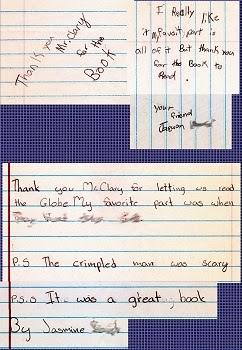 Thank you
Mr. Clary
for the
Book
I Really like
it my favorit part is
all of it But thank you
for the Book to
Read.
your
friend
Thank you Mr.Clary for letting us read
the Globe. My favorite part was when
P.S The crimpled man was scary
P.S.S It was a great book
By Jasmine